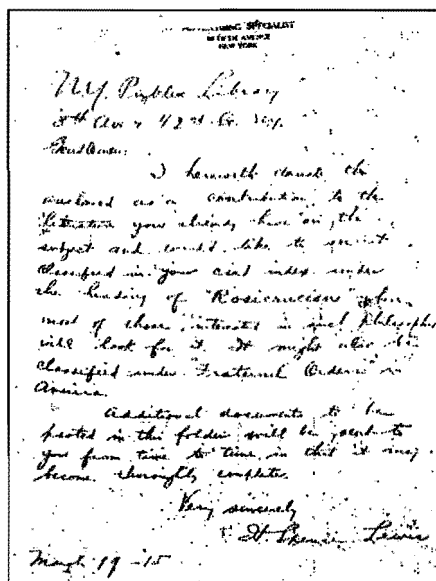 ADVERTISING SPECIALIST
FIFTH AVENUE
NEW YORK
N.Y. Public Library
5th Ave & 42nd St. N.Y.
Gentlemen:
I herewith donate the
enclosed as a contribution to the
literature you already have on the
subject and would like to see it
classified in your card index under
the heading of "Rosicrucians" where
most of those interested in such philosophy
will look for it. It might also be
classified under "Fraternal Orders" in
America.
Additional documents to be
pasted in this folder will be sent to
you from time to time in that it may
become thoroughly complete.
Very sincerely
H Spencer Lewis
March 19 - 15